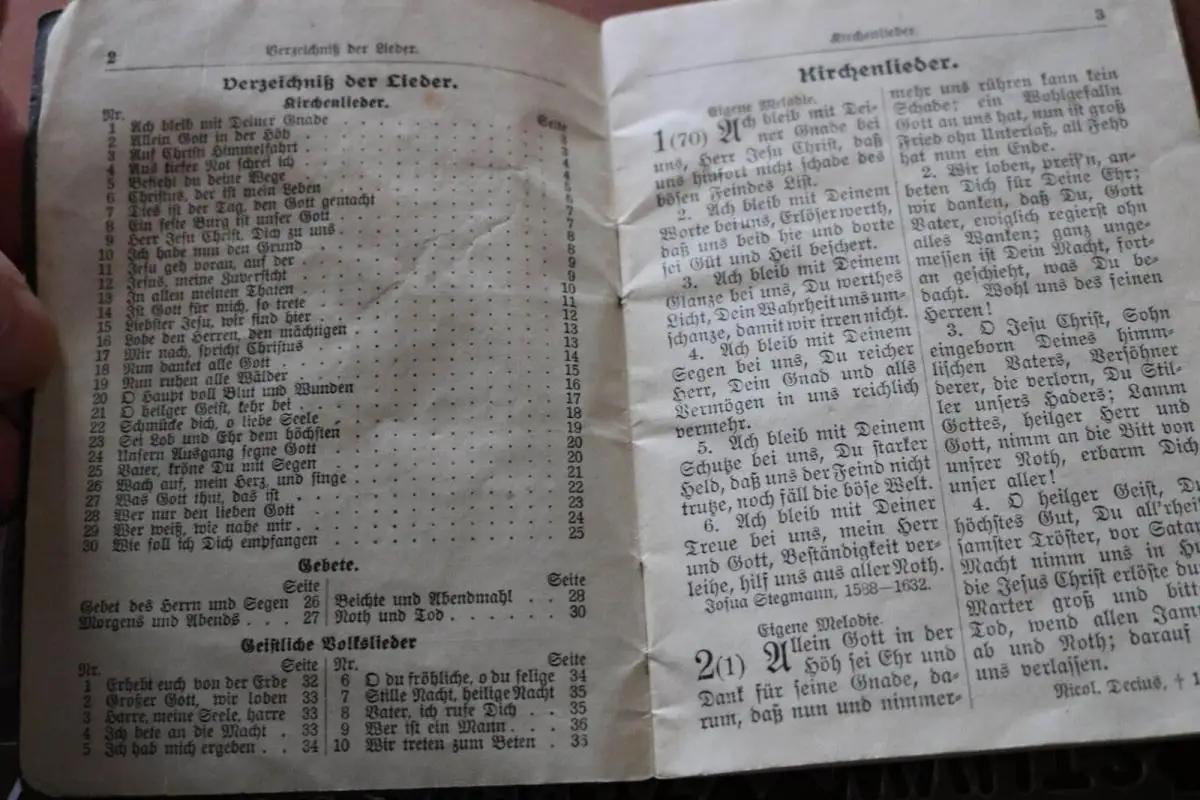 2
Verzeichniß der Lieder.
Verzeichniß der Lieder.
Kirchenlieder.
Nr. Seite
1 Ach bleib mit Deiner Gnade
2 Allein Gott in der Höh
3 Auf Christi Himmelfahrt
4 Aus tiefer Not schrei ich
5 Befiehl du deine Wege
6 Christus, der ist mein Leben
7 Dies ist der Tag, den Gott gemacht
8 Ein feste Burg ist unser Gott
9 Herr Jesu Christ, Dich zu uns
10 Ich habe nun den Grund
11 Jesu geh voran, auf der
12 Jesus, meine Zuversicht
13 In allen meinen Thaten
14 Ist Gott für mich, so trete
15 Liebster Jesu, wir sind hier
16 Lobe den Herren, den mächtigen
17 Mir nach, spricht Christus
18 Nun danket alle Gott
19 Nun ruhen alle Wälder
20 O Haupt voll Blut und Wunden
21 O heilger Geist, kehr bei
22 Schmücke dich, o liebe Seele
23 Sei Lob und Ehr dem höchsten
24 Unsern Ausgang segne Gott
25 Vater, kröne Du mit Segen
26 Wach auf, mein Herz, und singe
27 Was Gott thut, das ist
28 Wer nur den lieben Gott
29 Wer weiß, wie nahe mir
30 Wie soll ich Dich empfangen . . . 25
Gebete.
Seite
Gebet des Herrn und Segen 26
Morgens und Abends . . . 27
Seite
Beichte und Abendmahl . . 28
Noth und Tod . . . . . . 30
Geistliche Volkslieder
Nr. Seite
1 Erhebt euch von der Erde 32
2 Großer Gott, wir loben 33
3 Harre, meine Seele, harre 33
4 Ich bete an die Macht . 33
5 Ich hab mich ergeben . . 34
Nr. Seite
6 O du fröhliche, o du selige 34
7 Stille Nacht, heilige Nacht 35
8 Vater, ich rufe Dich . . 35
9 Wer ist ein Mann . . . 36
10 Wir treten zum Beten . 35
Kirchenlieder.
3
Kirchenlieder.
Eigene Melodie.
1(70) Ach bleib mit Dei-
ner Gnade bei
uns, Herr Jesu Christ, daß
uns hinfort nicht schade des
bösen Feindes List.
2. Ach bleib mit Deinem
Worte bei uns, Erlöser werth,
daß uns beid hie und dorte
sei Güt und Heil beschert.
3. Ach bleib mit Deinem
Glanze bei uns, Du werthes
Licht, Dein Wahrheit uns um-
schanze, damit wir irren nicht.
4. Ach bleib mit Deinem
Segen bei uns, Du reicher
Herr, Dein Gnad und alls
Vermögen in uns reichlich
vermehr.
5. Ach bleib mit Deinem
Schutze bei uns, Du starker
Held, daß uns der Feind nicht
trutze, noch fäll die böse Welt.
6. Ach bleib mit Deiner
Treue bei uns, mein Herr
und Gott, Beständigkeit ver-
leihe, hilf uns aus aller Noth.
Josua Stegmann, 1588–1632.
Eigene Melodie.
2(1) Allein Gott in der
Höh sei Ehr und
Dank für seine Gnade, da-
rum, daß nun und nimmer-
mehr uns rühren kann kein
Schade; ein Wohlgefalln
Gott an uns hat, nun ist groß
Fried ohn Unterlaß, all Fehd
hat nun ein Ende.
2. Wir loben, preis'n, an-
beten Dich für Deine Ehr;
wir danken, daß Du, Gott
Vater, ewiglich regierst ohn
alles Wanken; ganz unge-
messen ist Dein Macht, fort-
an geschieht, was Du be-
dacht. Wohl uns des feinen
Herren!
3. O Jesu Christ, Sohn
eingeborn Deines himm-
lischen Vaters, Versöhner
derer, die verlorn, Du Stil-
ler unsers Haders; Lamm
Gottes, heilger Herr und
Gott, nimm an die Bitt von
unsrer Noth, erbarm Dich
unser aller!
4. O heilger Geist, Du
höchstes Gut, Du all'rheil
samster Tröster, vor Satans
Macht nimm uns in Hu
die Jesus Christ erlöste du
Marter groß und bitt
Tod, wend allen Jam
ab und Noth; darauf
uns verlassen.
Nicol. Decius, † 1